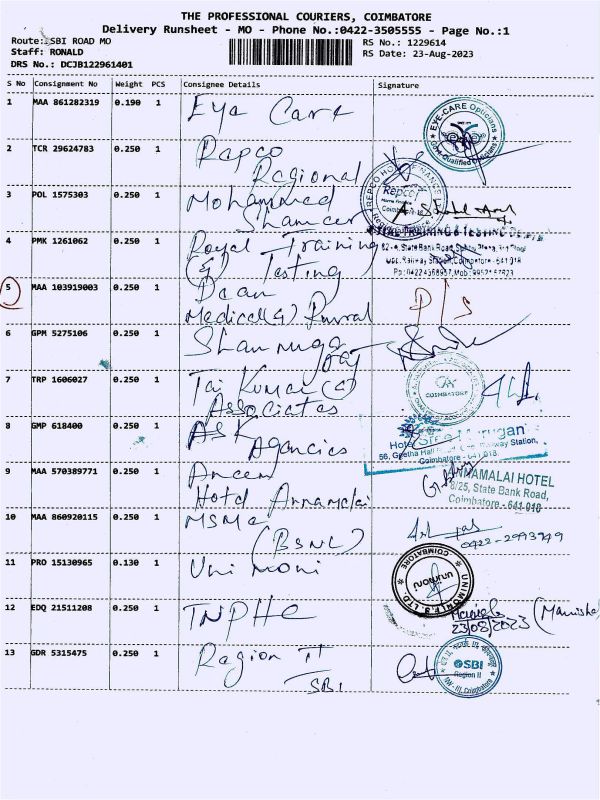 THE PROFESSIONAL COURIERS, COIMBATORE
Delivery Runsheet - MO - Phone No.:0422-3505555 - Page No.:1
Route: SBI ROAD MO
RS No.: 1229614
Staff: RONALD
RS Date: 23-Aug-2023
DRS No.: DCJB122961401
S No Consignment No Weight PCS Consignee Details Signature
1 MAA 861282319 0.190 1 Eye Care
EYE-CARE Opticians
2 TCR 29624783 0.250 1 Repco
Regional
3 POL 1575303 0.250 1 Mohammed
Repco
4 PMK 1261062 0.250 1 Royal Training
(&) Testing
5 MAA 103919003 0.250 1 Dean
Medical (&) D/S
6 GPM 5275106 0.250 1 Shanmuga
7 TRP 1606027 0.250 1 Jai Kumar (&)
Associates
COIMBATORE
8 GMP 618400 0.250 1 ASK
Agencies
Hotel Sree Murugan
Coimbatore - 641 018.
9 MAA 570389771 0.250 1
Hotel Annamalai
ANNAMALAI HOTEL
8/25, State Bank Road,
Coimbatore - 641 018
10 MAA 860920115 0.250 1 MSME
(BSNL)
11 PRO 15130965 0.130 1 Uni moni
COIMBATORE
12 EDQ 21511208 0.250 1 TNPHC
23/08/2023
13 GDR 5315475 0.250 1 Region II
SBI
SBI
Region II